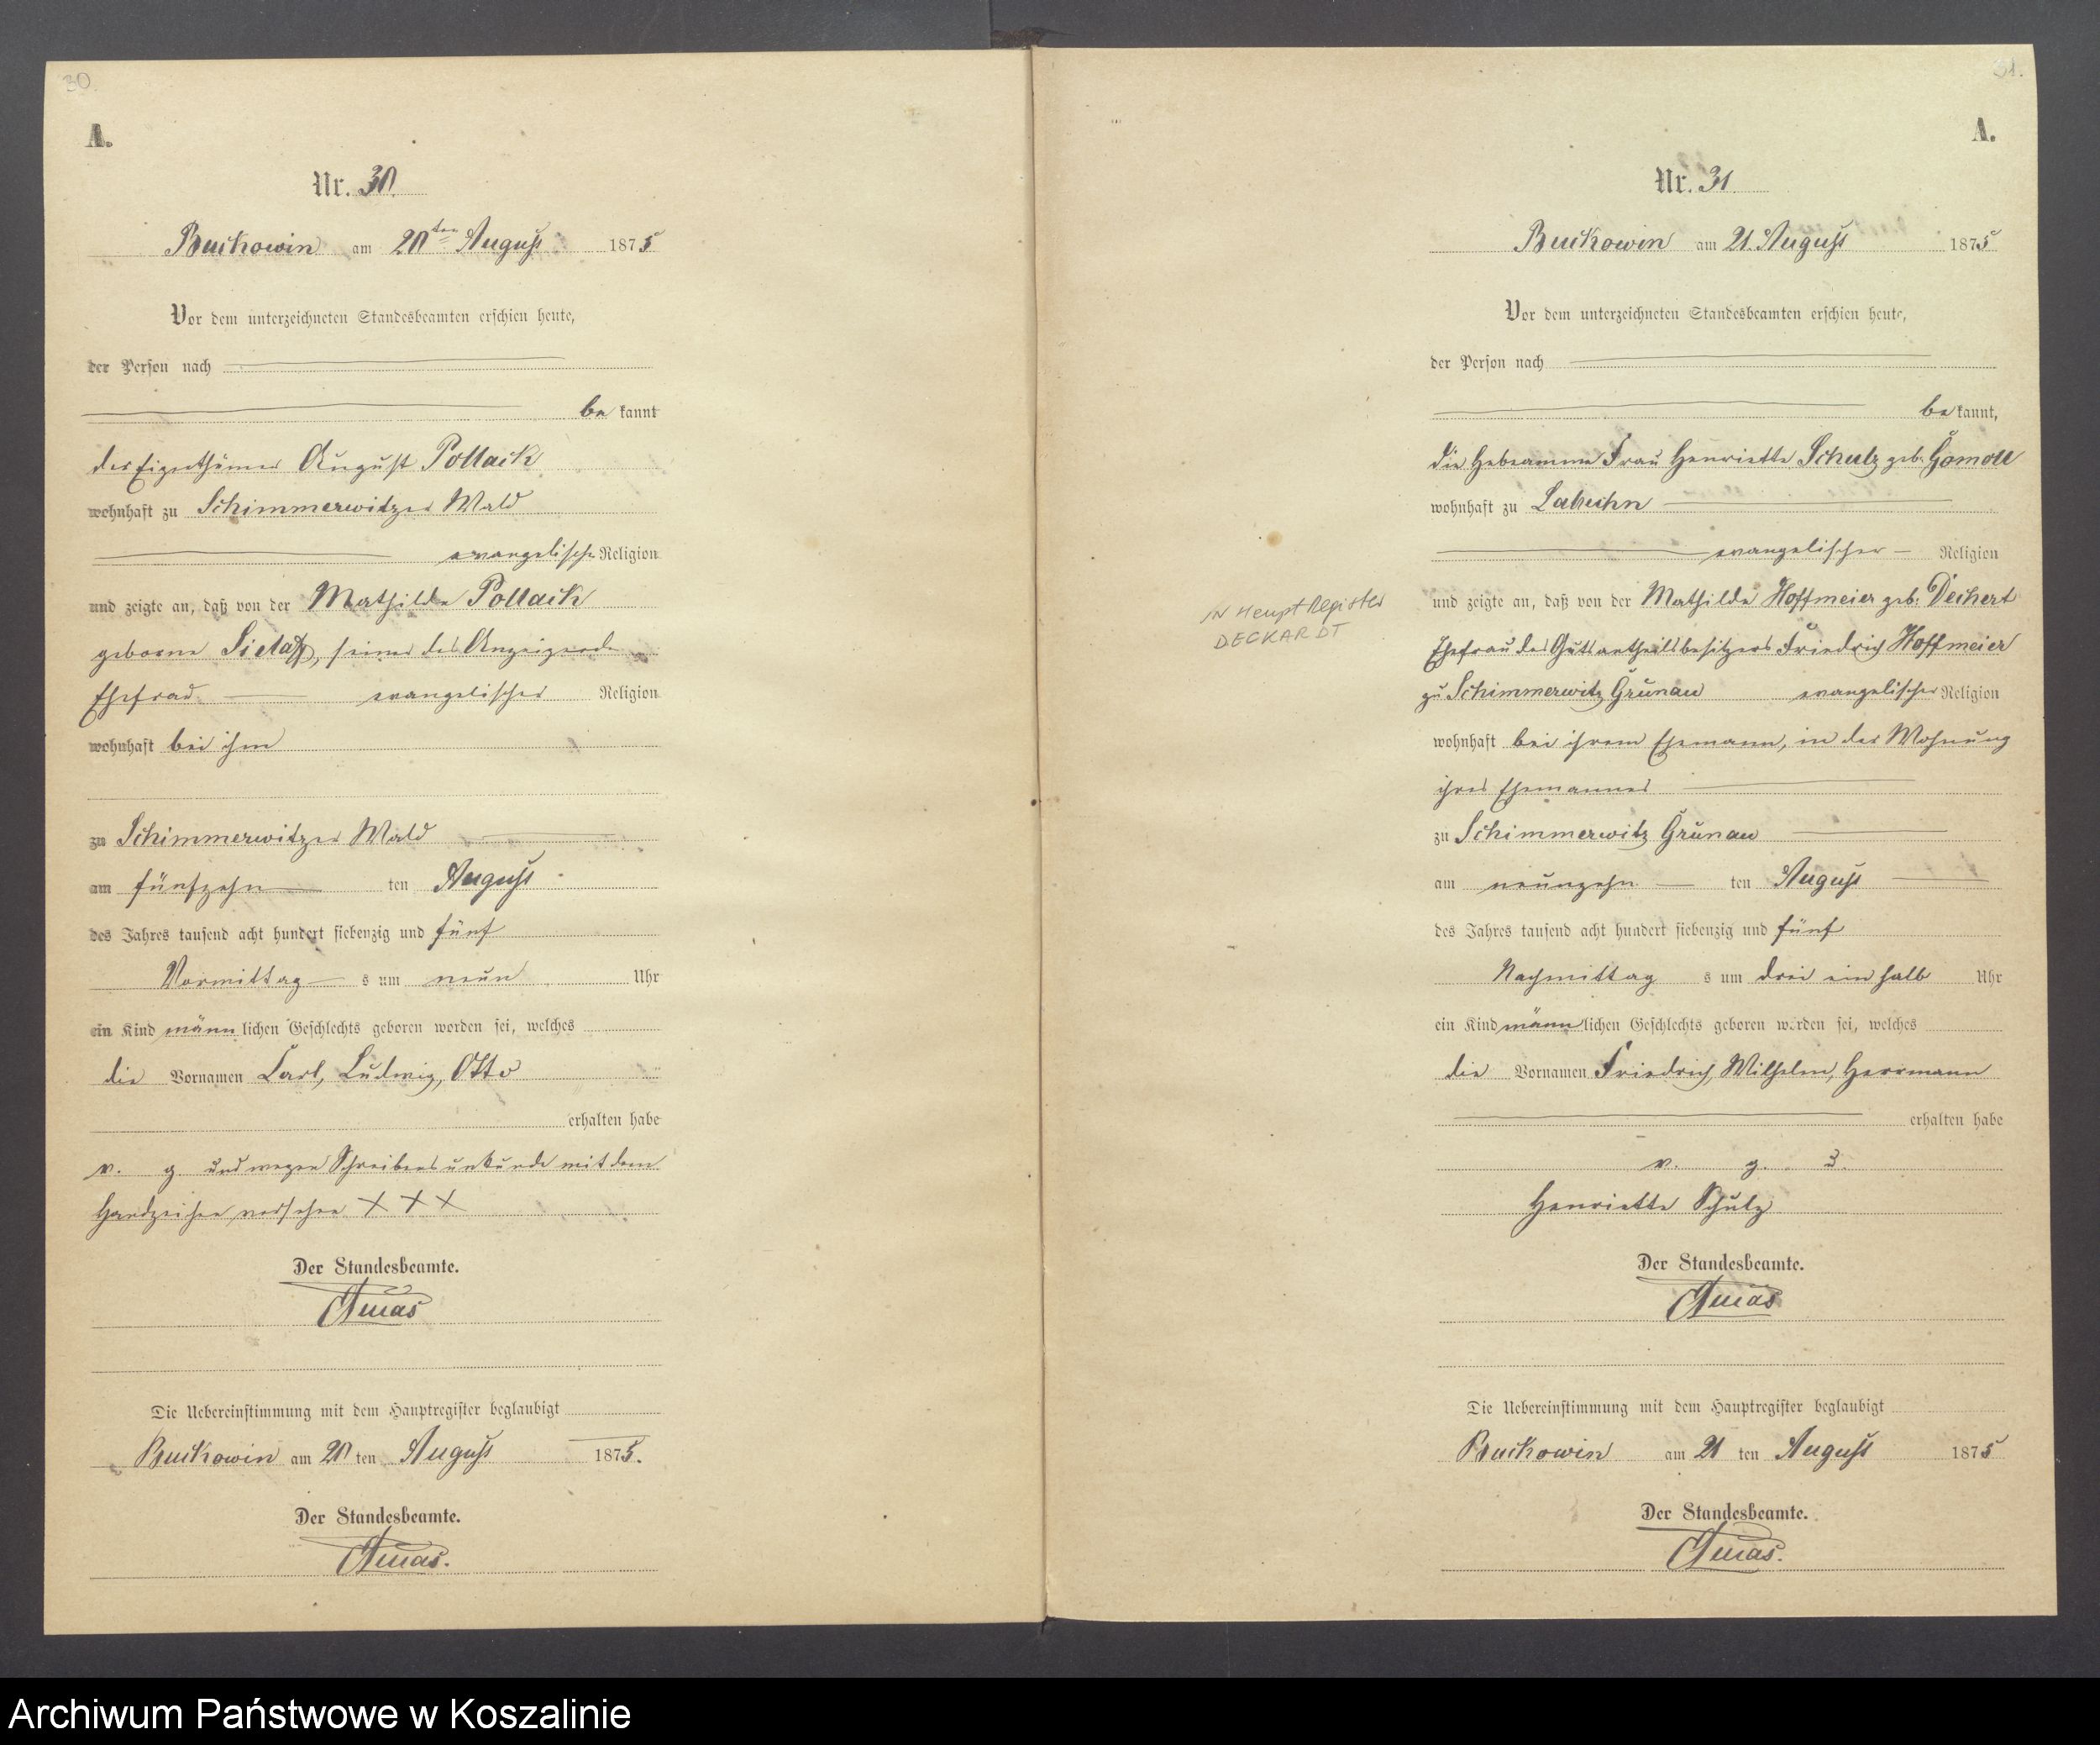 30
A.
Nr. 30.
Buckowin am 20ten August 1875
Vor dem unterzeichneten Standesbeamten erschien heute,
der Person nach
be kannt
der Eigenthümer August Pollack
wohnhaft zu Schimmerwitzer Wald
evangelischer Religion
und zeigte an, daß von der Mathilde Pollack
geborne seiner des Anzeigende
Ehefrau evangelischer Religion
wohnhaft bei ihm
zu Schimmerwitzer Wald
am fünfzehn ten August
des Jahres tausend acht hundert siebenzig und fünf
Vormittag s um neun Uhr
ein Kind männ lichen Geschlechts geboren worden sei, welches
die Vornamen Carl, Ludwig, Otto
erhalten habe
v. g. und wegen Schreibensunkunde mit dem
Handzeichen versehen X X X
Der Standesbeamte.
Die Uebereinstimmung mit dem Hauptregister beglaubigt
Buckowin am 20 ten August 1875.
Der Standesbeamte.
31.
A.
Nr. 31
Buckowin am 21. August 1875
Vor dem unterzeichneten Standesbeamten erschien heute,
der Person nach
be kannt,
die Hebeamme Frau Henriette Schulz geb. Gomoll
wohnhaft zu Labuhn
evangelischer Religion
und zeigte an, daß von der Mathilde Hoffmeier geb. Deckert
IN HauptRegister
DECKARDT
Ehefrau des Gutsantheilsbesitzers Friedrich Hoffmeier
zu Schimmerwitz Grünau evangelischer Religion
wohnhaft bei ihrem Ehemann, in der Wohnung
ihres Ehemannes
zu Schimmerwitz Grünau
am neunzehn ten August
des Jahres tausend acht hundert siebenzig und fünf
Nachmittag s um drei ein halb Uhr
ein Kind männ lichen Geschlechts geboren worden sei, welches
die Vornamen Friedrich, Wilhelm, Herrmann
erhalten habe
v. g. u.
Henriette Schulz
Der Standesbeamte.
Die Uebereinstimmung mit dem Hauptregister beglaubigt
Buckowin am 21 ten August 1875
Der Standesbeamte.
Archiwum Państwowe w Koszalinie